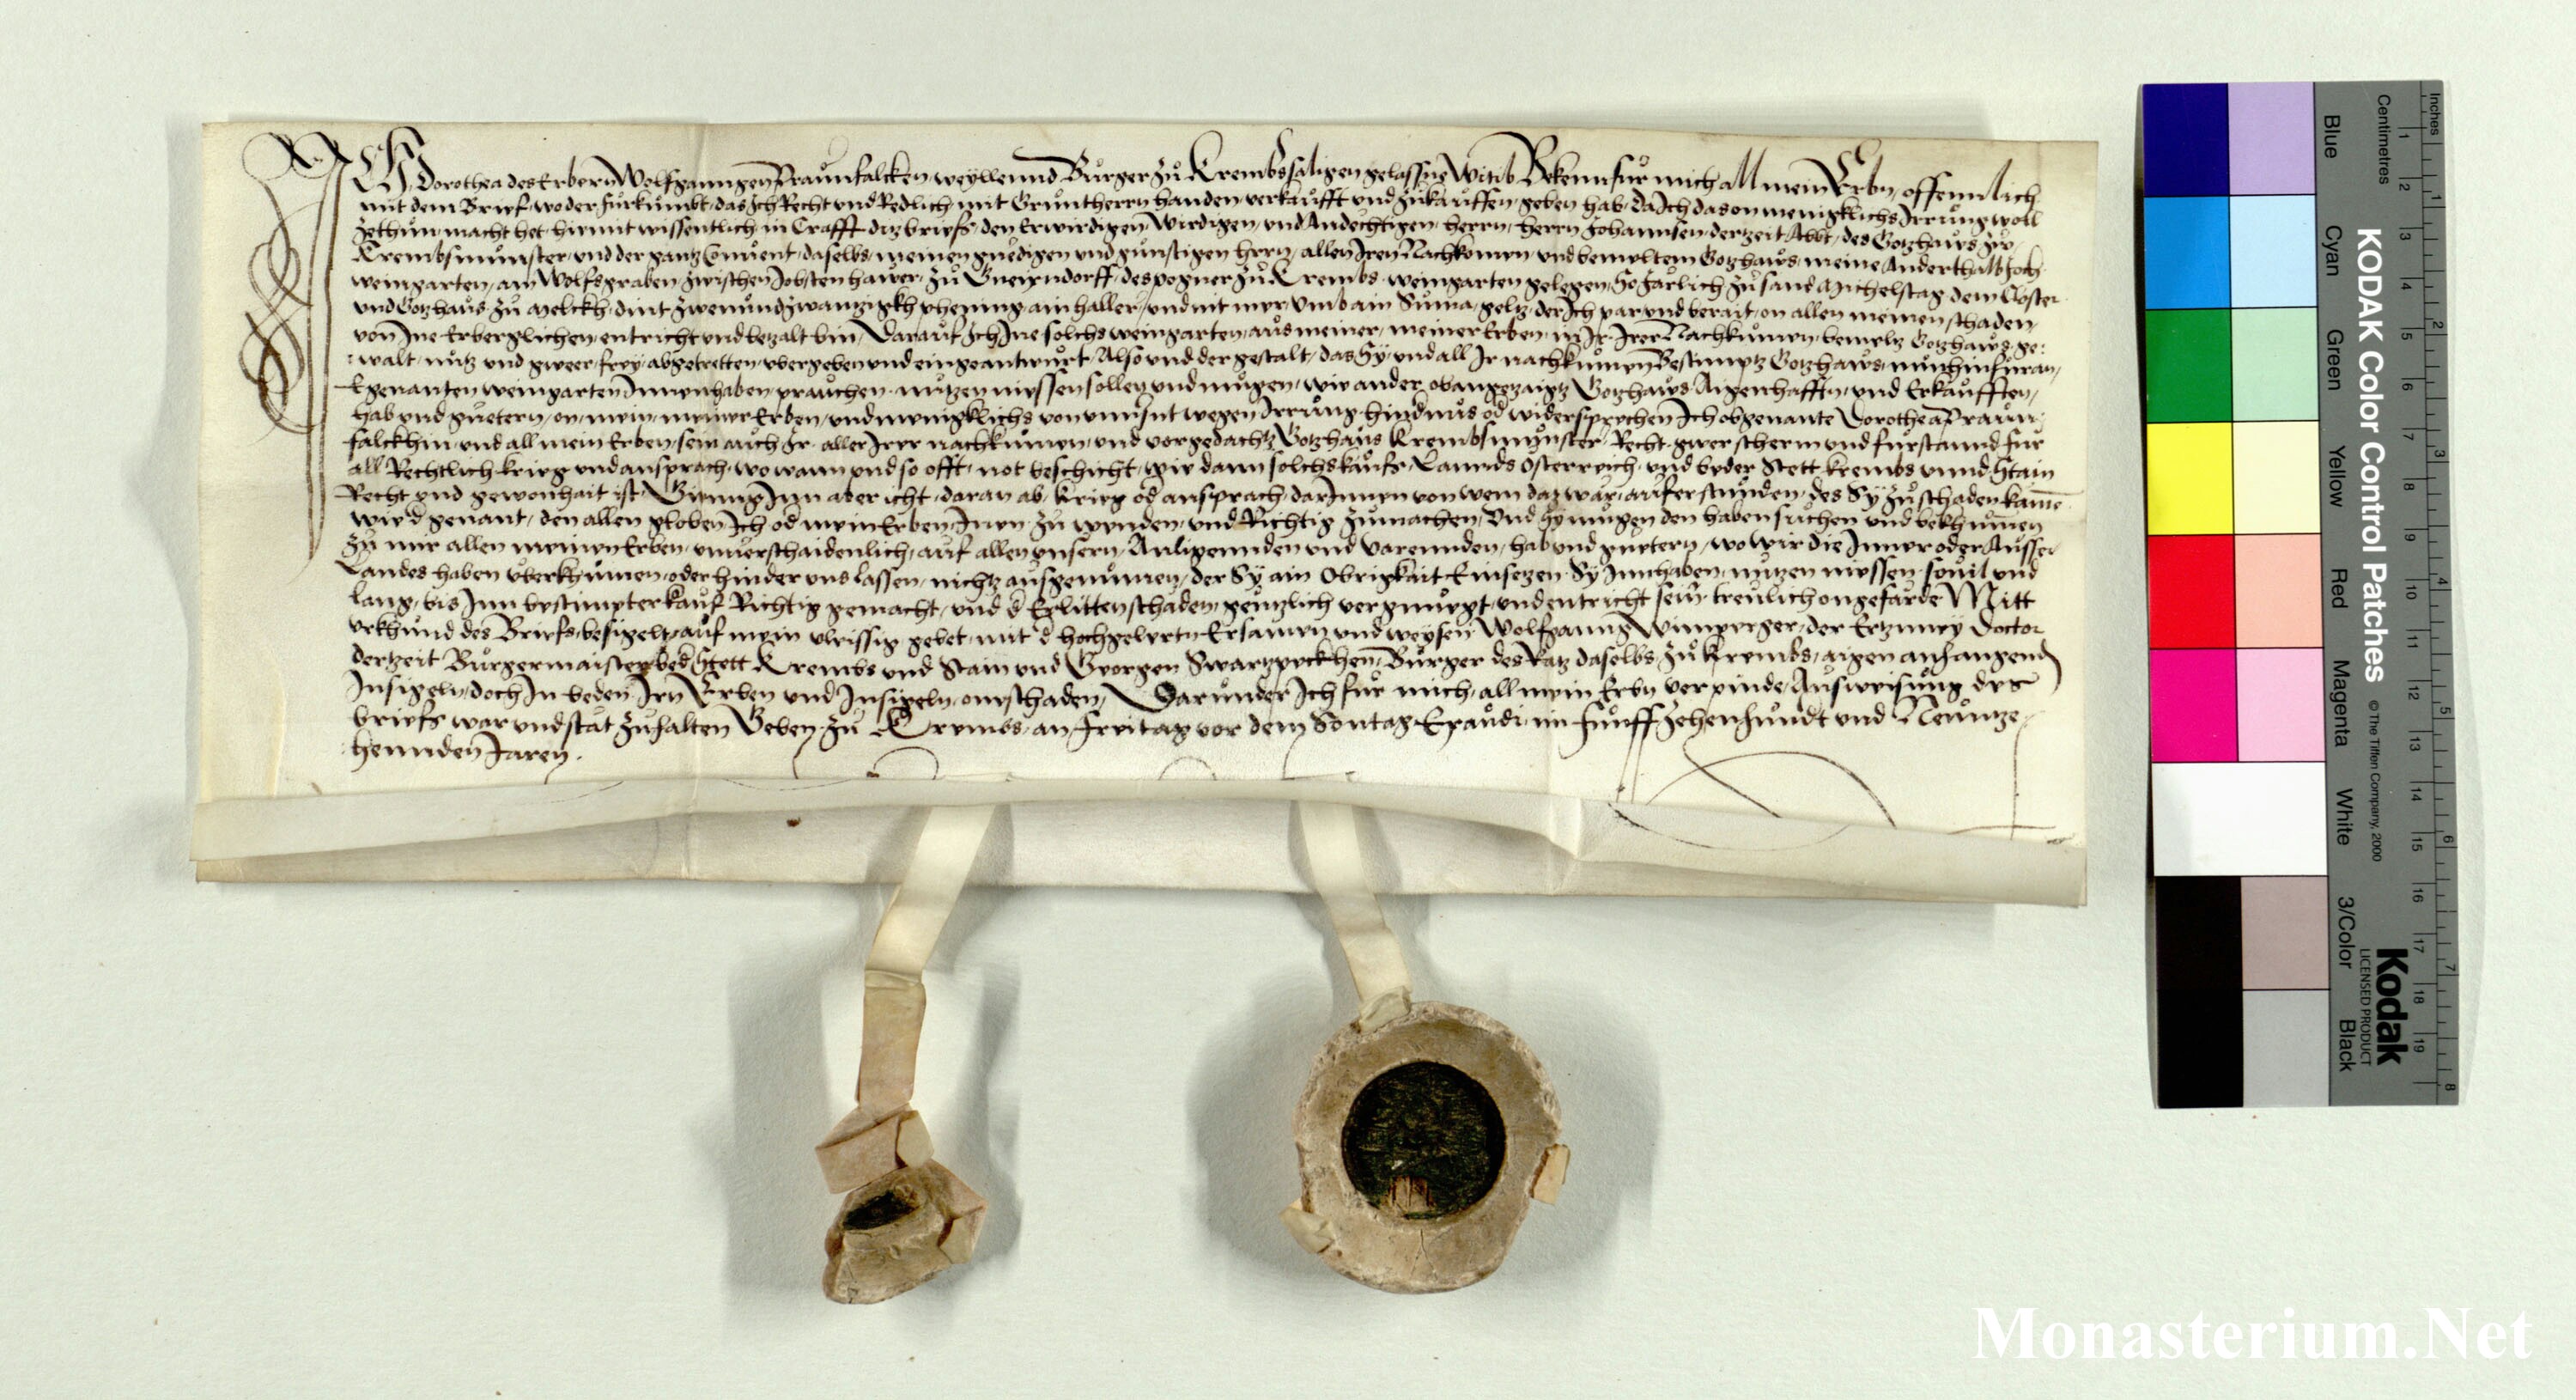 ICh Dorothea des Erbern Wolfganngen Praunfalcken weyllennd Burger zu Krembs saligen gelassne Witib Bekenn fur mich all mein Erbn offennlich
mit dem Brief wo der furkumbt das Ich Recht vnd Redlich mit Gruntherrn handen verkaufft vnd zukauffen geben hab Da Ich das on menigklichs Irrung woll
gethun macht het hiemit wissentlich in Crafft ditz briefs den Erwirdigen Wirdigen vnd Andechtigen herrn herrn Johannsen derzeit Abbt des Gotzhaus zu
Krembsmunster vnd der gantz Conuent daselbs meinen gnedigen vnd gunstigen herrn allen Iren Nachkomen vnd bemeltem Gotzhaus meine Anderthalb Joch
weingarten am Wolfsgraben zwischen Jobsten hawer zu Gneixndorff des pogner zu Krembs weingarten gelegen So Jarlich zu sand Michelstag dem Closter
vnd Gotzhaus zu Melckh dint zwenundzwantzigkh phening ain haller vnd mit mer vmb ain Suma geltz der Ich par vnd berait on allen meinen schaden
von Ine Erberglichen entricht vnd betzalt bin Darauf Ich Ine solchs weingarten aus meiner meiner Erben in Ir Irer Nachkumen bemeltz Gotzhaus ge:
walt nutz vnd gweer frey abgetretten vbergeben vnd eingeantwurt Also vnd der gestalt das Sy vnd all Ir nachkumen Bestimptz Gotzhaus nun hinfuran
Egenanten weingarten Innenhaben prauchen nutzen niessen sollen vnd mugen wie ander obangezaigtz Gotzhaus Aigenhafften vnd Erkaufften
hab vnd guetern on mein meiner Erben vnd menigklichs von vnnsnt wegen Irrung hindnus od widersprechen Ich obgenante Dorothea Praun
falckhin vnd all mein Erben sein auch Ir aller Irer nachkumen vnd vorgedachtz Gotzhaus Krembsmunster Recht gwer scherm vnd furstannd fur
all Rechtlich krieg vnd ansprach wo wann vnd so offt not beschicht wie dann solchs kaufs Lannds Osterreich vnd beder Stett Krembs vnnd Stain
Recht vnd gewonhait ist Gienng Inn aber icht daran ab krieg od ansprach darInnen von wem daz war auferstunden des Sy zu schaden kamē
wie d genant den allen globen Ich od mein Erben Inen zu wenden vnd Richtig zumachen Vnd Sy mugen den haben suchen vnd bekhumen
zu mir allen meinen Erben vnuerschaidenlich auf allen vnsern Anligennden vnd Varennden hab vnd guetern wo wir die Inner oder Ausser
Landes haben vberkhumen oder hinder vns lassen nichtz ausgenumen der Sy ain Obrigkait Einsetzen Sy Innhaben nutzen niessen souil vnd
lang bis Inn bestimpter kauf Richtig gemacht vnd d Erlitten schaden gentzlich vergnuegt vnd entricht sein treulich ongefarde Mitt
vrkhund des Briefs besigelt auf mein vleissig gebet mit d hochgelertn Ersamen vnd weysen Wolfganng Winperger der Ertzney Doctor
derzeit Burgermaister bed Stett Krembs vnd Stain vnd Georgen Swartzpeckhen Burger des Ratz daselbs zu Krembs aigen anhangend
Insigeln doch In beden Irn Erben vnd Insigeln on schaden Darunder Ich fur mich all mein Erbn verpinde Ausweisung des
briefs war vnd stat zuhalten Geben zu Krembs an freitag vor dem Sontag Exaudi im funffzehenhundt vnd Neuntze
hennden Jaren
KODAK Color Control Patches
© The Tiffen Company, 2000
Kodak
LICENSED PRODUCT
Blue Cyan Green Yellow Red Magenta White 3/Color Black
Centimetres 1 2 3 4 5 6 7 8 9 10 11 12 13 14 15 16 17 18 19
Inches 1 2 3 4 5 6 7 8
Monasterium.Net